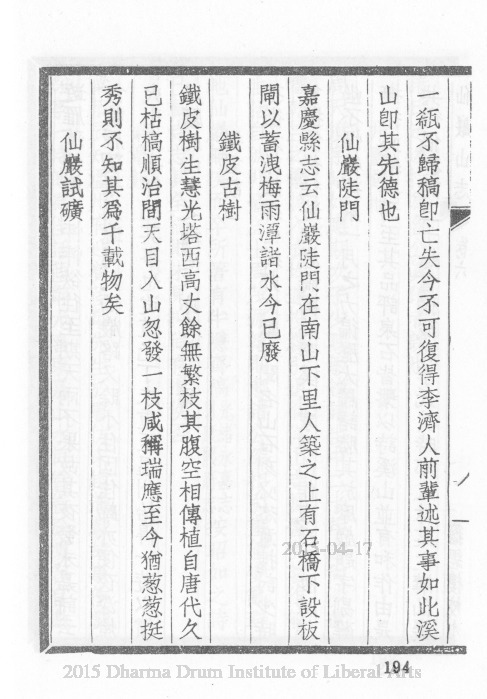 一甁不歸稿卽亡失今不可復得李濟人前輩述其事如此溪
山卽其先德也
仙巖陡門
嘉慶縣志云仙巖陡門在南山下里人築之上有石橋下設板
閘以蓄洩梅雨潭諸水今已廢
鐵皮古樹
鐵皮樹生慧光塔西高丈餘無繁枝其腹空相傳植自唐代久
已枯槁順治間天目入山忽發一枝咸稱瑞應至今猶葱葱挺
秀則不知其爲千載物矣
仙巖試礦
194
2015 Dharma Drum Institute of Liberal Arts